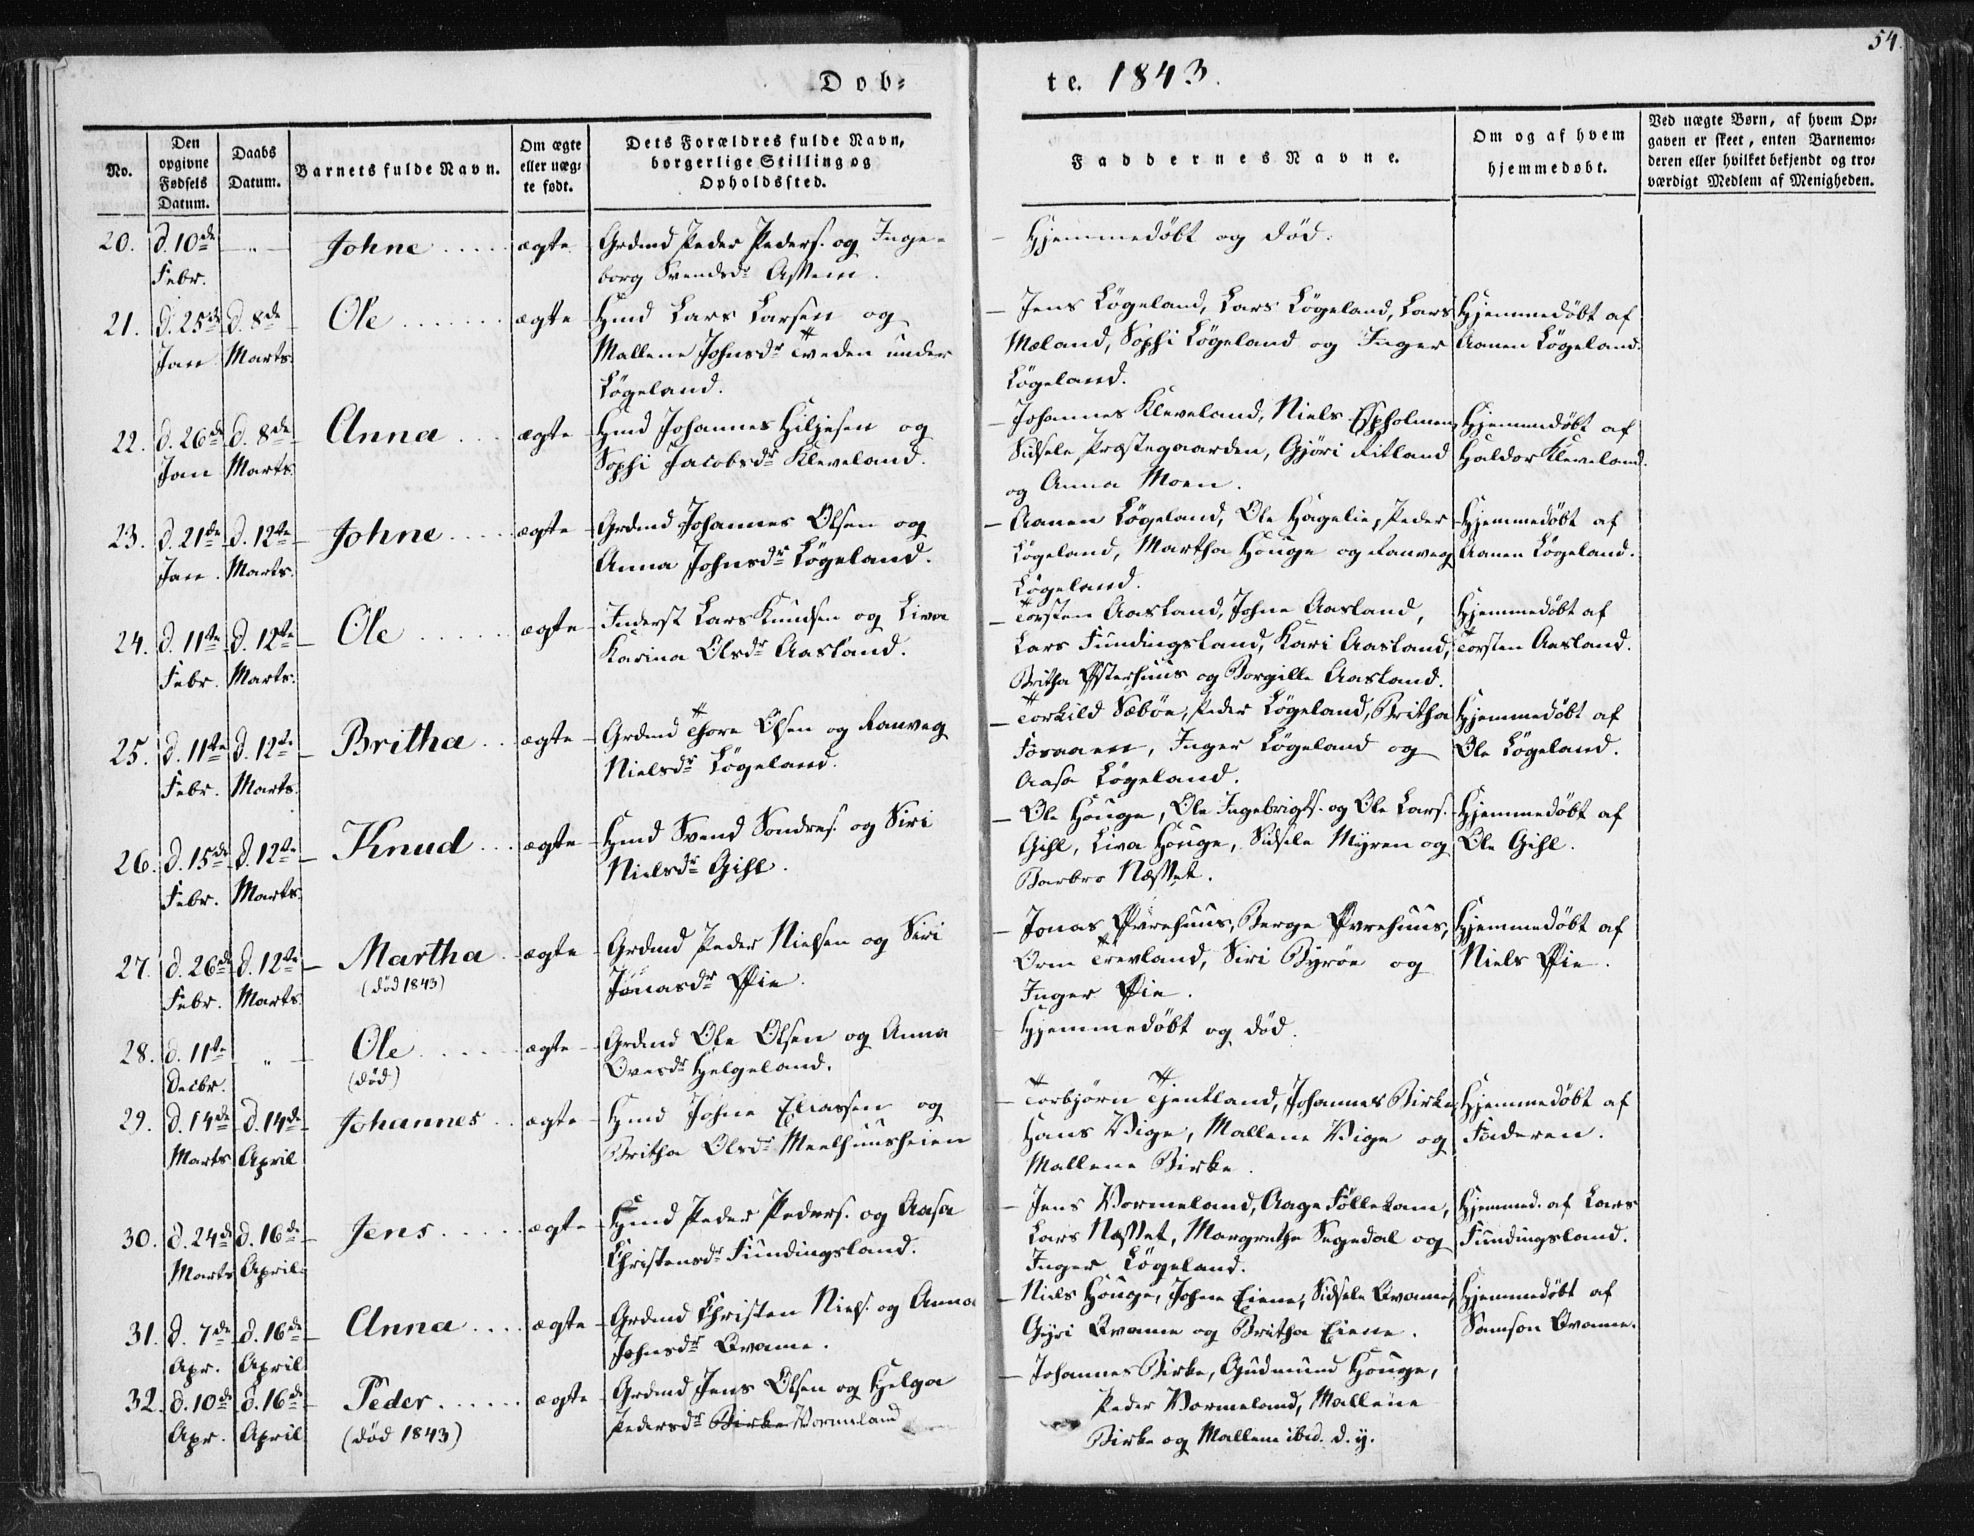 54.
Dob=
te. 1843.
No.
Den opgivne Fødsels Datum.
Daabs Datum.
Barnets fulde Navn.
Om ægte eller uæg= te født.
Dets Forældres fulde Navn, borgerlige Stilling og Opholdssted.
Faddernes Navne.
Om og af hvem hjemmedøbt.
Ved uægte Børn, af hvem Op= gaven er skeet, enten Barnemo= deren eller hvilket bekjendt og tro= værdigt Medlem af Menigheden.
20. d. 10de Febr. — „ — Johne ægte
Grdmd Peder Peders. og Inge-
borg Svendsdr
Hjemmedøbt og død.
21. d. 25de Jan d. 8de Marts. Ole ægte
Hmd Lars Larsen og
Mallene Johnsdr Tveden under
Løgeland.
Jens Løgeland, Lars Løgeland, Lars
Mæland, Sophi Løgeland og Inger
Løgeland.
Hjemmedøbt af
Aanen Løgeland.
22. d. 26de Jan d. 8de Marts. Anna ægte
Hmd Johannes Hiljesen og
Sophi Jacobsdr Kleveland.
Johannes Kleveland, Niels Espholmen,
Sidsele Præstegaarden, Gjøri Ritland
og Anna Moen.
Hjemmedøbt af
Haldor Kleveland.
23. d. 21de Jan. d. 12te Marts. Johne ægte
Grdmd Johannes Olsen og
Anna Johnsdr Løgeland.
Aanen Løgeland, Ole Hagelie, Peder
Løgeland, Martha Houge og Ranveg
Løgeland.
Hjemmedøbt af
Aanen Løgeland.
24. d. 11te Febr. d. 12te Marts. Ole ægte
Inderst Lars Knudsen og Liva
Karina Olsdr Aasland.
Torsten Aasland, Johne Aasland,
Lars Fundingsland, Kari Aasland,
Britha Østerhuus og Borgille Aasland.
Hjemmedøbt af
Torsten Aasland.
25. d. 11te Febr. d. 12te Marts. Britha ægte
Grdmd Thore Olsen og Ranveg
Nielsdr Løgeland.
Torkild Sæbøe, Peder Løgeland, Britha
Foraaen, Inger Løgeland og
Aasa Løgeland.
Hjemmedøbt af
Ole Løgeland.
26. d. 15de Febr. d. 12te Marts. Knud ægte
Hmd Svend Sondres. og Siri
Nielsdr Gihl.
Ole Houge, Ole Ingebrigts. og Ole Lars.
Gihl, Liva Houge, Sidsele Myren og
Barbro
Hjemmedøbt af
Ole Gihl.
27. d. 26de Febr. d. 12te Marts. Martha (død 1843) ægte
Grdmd Peder Nielsen og Siri
Jonasdr Øie.
Jonas Øvrehuus, Berge Øvrehuus,
Orm Trevland, Siri Byrøe og
Inger Øie.
Hjemmedøbt af
Niels Øie.
28. d. 11te Decbr. „ — Ole (død) ægte
Grdmd Ole Olsen og Anna
Ovesdr Helgeland.
Hjemmedøbt og død.
29. d. 14de Marts d. 14de April Johannes ægte
Hmd Johne Eliassen og
Britha Olsdr Meelhuusheien
Torbjørn Tjentland, Johannes Birke,
Hans Vige, Mallene Vige og
Mallene Birke.
Hjemmedøbt af
Faderen.
30. d. 24de Marts d. 16de April. Jens ægte
Hmd Peder Peders. og Aasa
Christensdr Fundingsland.
Jens Vormeland, Aage Følleland,
Lars Margrethe Segedal og
Inger Løgeland.
Hjemmed. af Lars
Fundingsland.
31. d. 7de Apr. d. 16de April Anna ægte
Grdmd Christen Niels. og Anna
Johnsdr Qvame.
Niels Houge, Johne Eiene, Sidsele Qvame,
Gyri Qvame og Britha Eiene.
Hjemmedøbt af
Samson Qvame.
32. d. 10de Apr. d. 16de April Peder (død 1843) ægte
Grdmd Jens Olsen og Helga
Pedersdr Birke Vormeland
Johannes Birke, Gudmund Houge,
Peder Vormeland, Mallene
Birke og Mallene ibid. d. y.